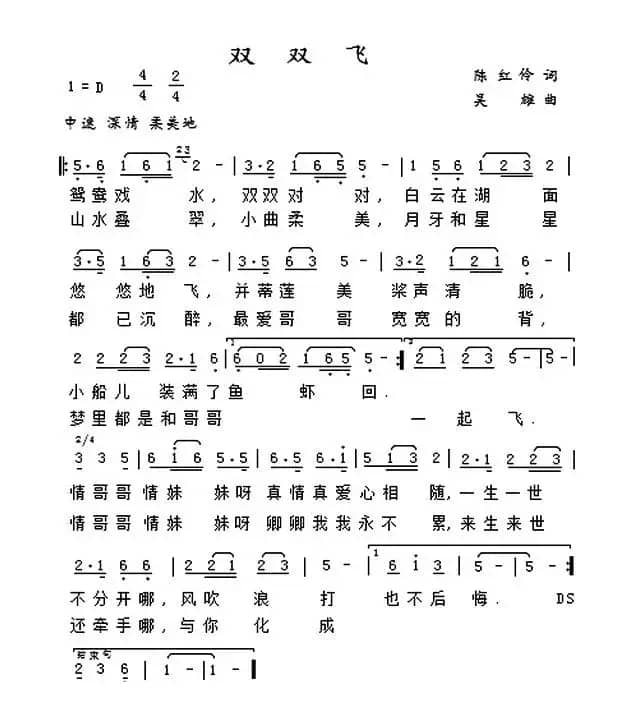 双 双 飞
1 = D 4/4 2/4
陈 红 伶 词
吴 雄 曲
中速 深情 柔美地
23
5·6 1 6 1 2 - | 3·2 1 6 5 5 - | 1 5 6 1 2 3 2 |
鸳鸯戏 水, 双双对 对, 白云在湖 面
山水叠 翠, 小曲柔 美, 月牙和星 星
3·5 1 6 3 2 - | 3·5 6 3 5 - | 3·2 1 2 1 6 - |
悠 悠地飞, 并蒂莲 美 桨声清 脆,
都 已沉醉, 最爱哥 哥 宽宽的 背,
2 2 2 3 2·1 6 | 1 6 0 2 1 6 5 5 - :| 2 2 1 2 3 5 - |
小船儿 装满了鱼 虾 回.
梦里都是和哥哥 一 起 飞.
2/4
3 3 5 | 6 1 6 | 5·5 | 6·5 6·1 | 5 1 3 | 2 - | 2·1 | 2 2 3 |
情哥哥情妹 妹呀真情真爱心相 随,一生一世
情哥哥情妹 妹呀卿卿我我永不 累,来生来世
2·1 6 6 | 2 2 1 2 3 | 5 - | 1 6 1 3 | 5 - | 5 - :|
不分开哪,风吹 浪 打 也不后悔. DS
还牵手哪,与你 化 成
结束句
2 3 6 | 1 - | 1 - |